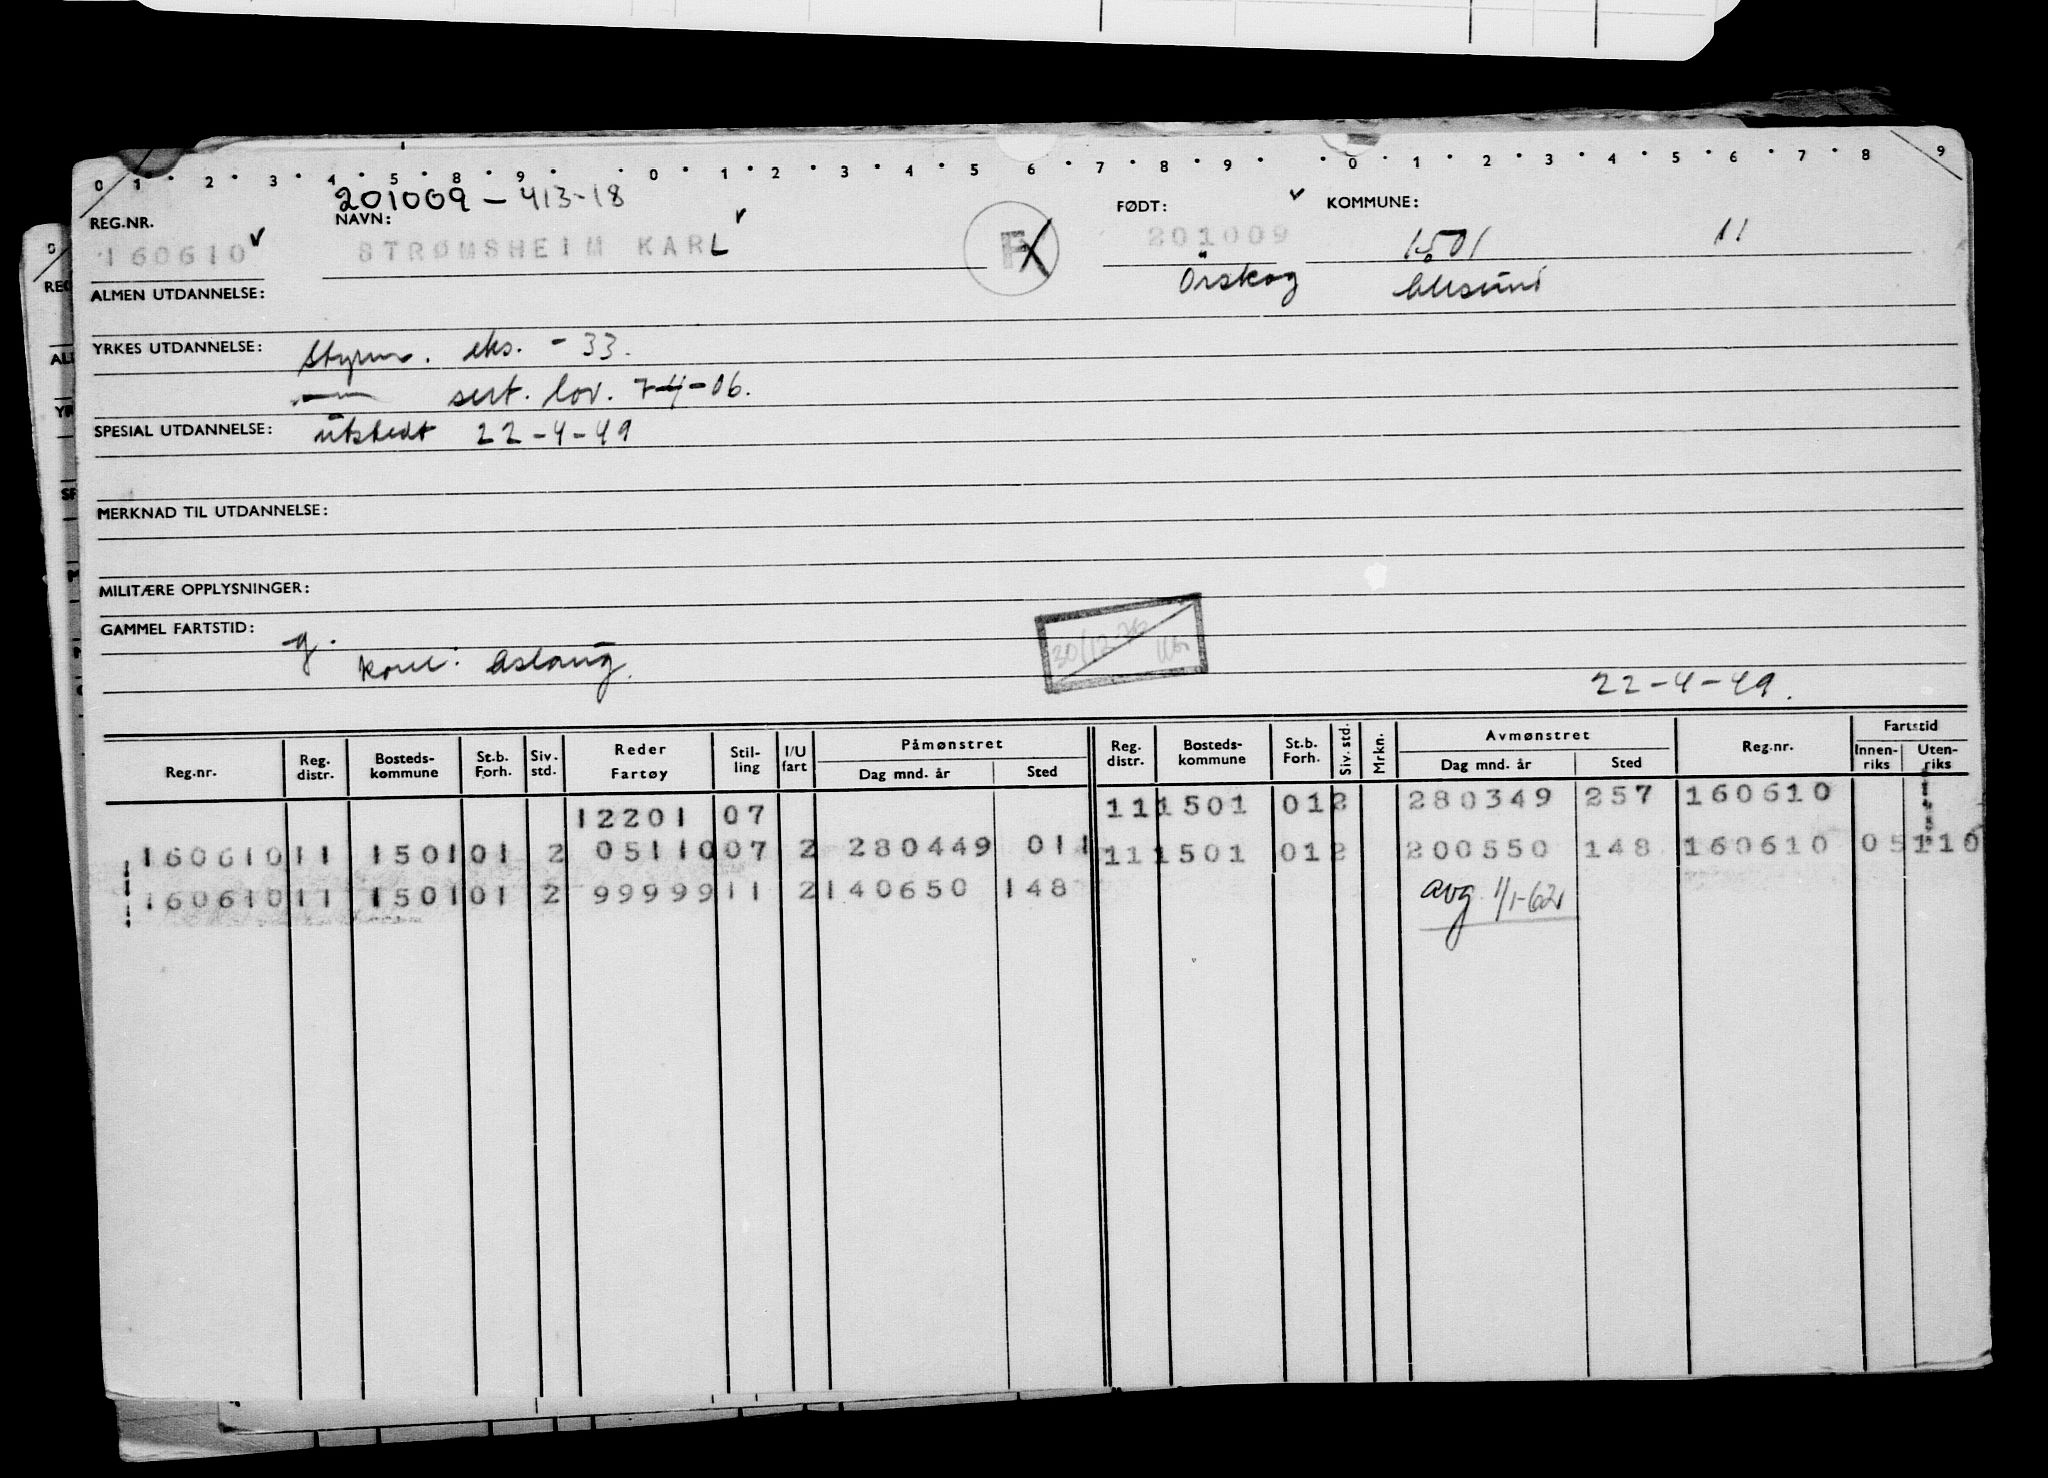 0 1 2 3 4 5 8 9 0 1 2 3 4 5 6 7 8 9 0 1 2 3 4 5 6 7 8 9
201009 - 413-18
REG.NR. NAVN: FØDT: KOMMUNE:
160610 STRØMSHEIM KARL F 201009 1501 11
Örskog Ålesund
ALMEN UTDANNELSE:
YRKES UTDANNELSE: Styrm. eks. - 33.
sert. lov. 7-4-06.
SPESIAL UTDANNELSE: utstedt 22-4-49
MERKNAD TIL UTDANNELSE:
MILITÆRE OPPLYSNINGER:
GAMMEL FARTSTID:
g.
Kone: Aslaug.
30/12
22-4-49.
Reg.nr. Reg. distr. Bosteds- kommune St.b. Forh. Siv. std. Reder Fartøy Stil- ling I/U fart Påmønstret Dag mnd. år Sted Reg. distr. Bosteds- kommune St.b. Forh. Siv. std. Mrkn. Avmønstret Dag mnd. år Sted Reg.nr. Fartstid Innen- riks Uten- riks
12201 07 11 1501 01 2 280349 257 160610
160610 11 1501 01 2 05110 07 2 280449 011 11 1501 01 2 200550 148 160610 05110
160610 11 1501 01 2 99999 11 2 140650 148 avg 1/1-62